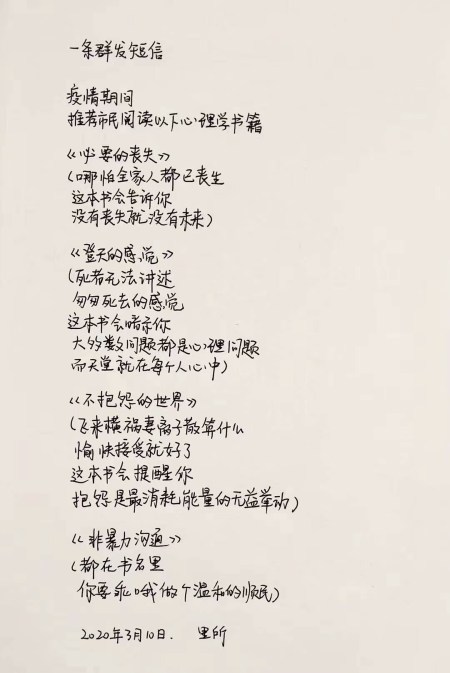 一条群发短信
疫情期间
推荐市民阅读以下心理学书籍
《必要的丧失》
(哪怕全家人都已丧生
这本书会告诉你
没有丧失就没有未来)
《登天的感觉》
(死者无法讲述
匆匆死去的感觉
这本书会暗示你
大多数问题都是心理问题
而天堂就在每个人心中)
《不抱怨的世界》
(飞来横祸妻离子散算什么
愉快接受就好了
这本书会提醒你
抱怨是最消耗能量的无益举动)
《非暴力沟通》
(都在书名里
你要乖哦做个温和的顺民)
2020年3月10日. 里所